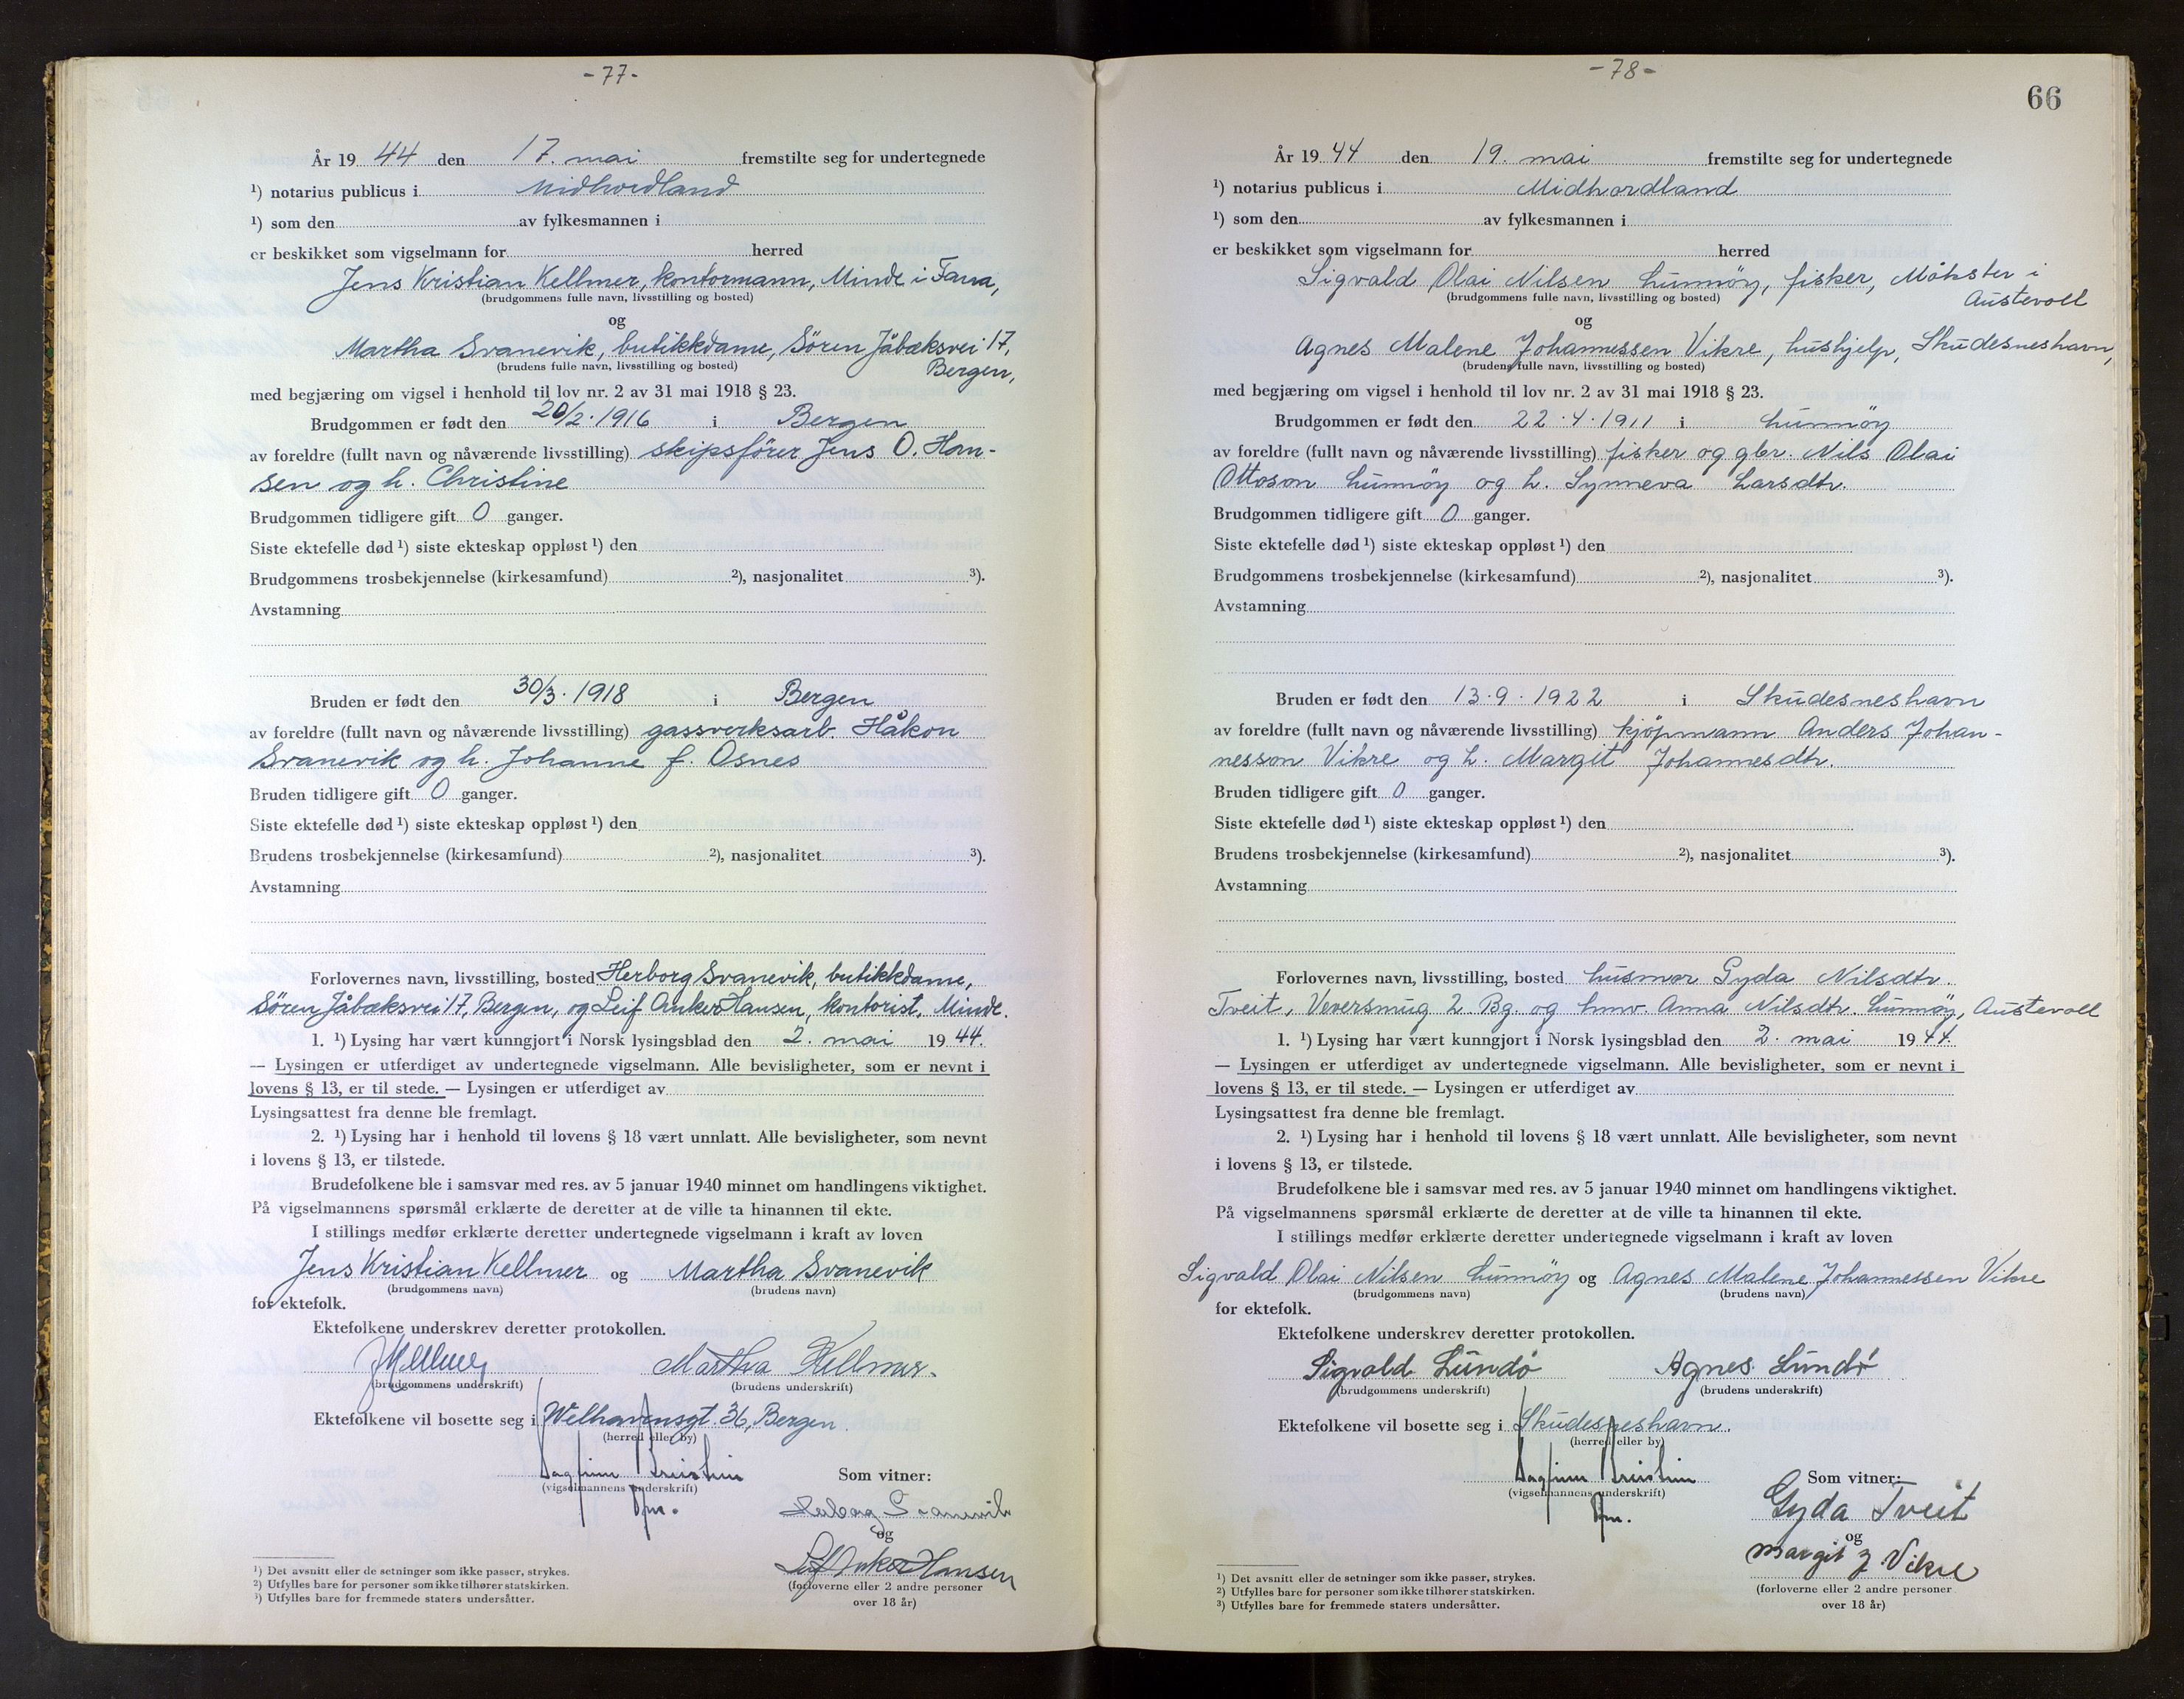 -77-
År 19 44 den 17. mai fremstilte seg for undertegnede
¹) notarius publicus i Midhordland
¹) som den av fylkesmannen i
er beskikket som vigselmann for herred
Jens Kristian Kellmer, kontormann, Minde i Fana,
(brudgommens fulle navn, livsstilling og bosted)
og
Martha Svanevik, butikkdame, Sören Jåbæksvei 17,
(brudens fulle navn, livsstilling og bosted)
Bergen,
med begjæring om vigsel i henhold til lov nr. 2 av 31 mai 1918 § 23.
Brudgommen er født den 20/2. 1916 i Bergen
av foreldre (fullt navn og nåværende livsstilling) skipsfører Jens O. Han-
sen og h. Christine
Brudgommen tidligere gift 0 ganger.
Siste ektefelle død ¹) siste ekteskap oppløst ¹) den
Brudgommens trosbekjennelse (kirkesamfund) ²), nasjonalitet ³).
Avstamning
Bruden er født den 30/3. 1918 i Bergen
av foreldre (fullt navn og nåværende livsstilling) gassverksarb. Håkon
Svanevik og h. Johanne f. Osnes
Bruden tidligere gift 0 ganger.
Siste ektefelle død ¹) siste ekteskap oppløst ¹) den
Brudens trosbekjennelse (kirkesamfund) ²), nasjonalitet ³).
Avstamning
Forlovernes navn, livsstilling, bosted Herborg Svanevik, butikkdame,
Sören Jåbæksvei 17, Bergen, og Leif Anker Hansen, kontorist, Minde.
1. ¹) Lysing har vært kunngjort i Norsk lysingsblad den 2. mai 19 44.
— Lysingen er utferdiget av undertegnede vigselmann. Alle bevisligheter, som er nevnt i
lovens § 13, er til stede. — Lysingen er utferdiget av
Lysingsattest fra denne ble fremlagt.
2. ¹) Lysing har i henhold til lovens § 18 vært unnlatt. Alle bevisligheter, som nevnt
i lovens § 13, er tilstede.
Brudefolkene ble i samsvar med res. av 5 januar 1940 minnet om handlingens viktighet.
På vigselmannens spørsmål erklærte de deretter at de ville ta hinannen til ekte.
I stillings medfør erklærte deretter undertegnede vigselmann i kraft av loven
Jens Kristian Kellmer og Martha Svanevik
(brudgommens navn) (brudens navn)
for ektefolk.
Ektefolkene underskrev deretter protokollen.
JKellmer Martha Kellmer.
(brudgommens underskrift) (brudens underskrift)
Ektefolkene vil bosette seg i Welhavensgt. 36, Bergen.
(herred eller by)
Dagfinn Som vitner:
(vigselmannens underskrift)
Herborg Svanevik
og
Leif Anker Hansen
(forloverne eller 2 andre personer
over 18 år)
¹) Det avsnitt eller de setninger som ikke passer, strykes.
²) Utfylles bare for personer som ikke tilhører statskirken.
³) Utfylles bare for fremmede staters undersåtter.
-78-
66
År 19 44 den 19. mai fremstilte seg for undertegnede
¹) notarius publicus i Midhordland
¹) som den av fylkesmannen i
er beskikket som vigselmann for herred
Sigvald Olai Nilsen Lunnöy, fisker, Møkster i
(brudgommens fulle navn, livsstilling og bosted) Austevoll
og
Agnes Malene Johannessen Vikre, hushjelp, Skudesneshavn,
(brudens fulle navn, livsstilling og bosted)
med begjæring om vigsel i henhold til lov nr. 2 av 31 mai 1918 § 23.
Brudgommen er født den 22.4.1911 i Lunnöy
av foreldre (fullt navn og nåværende livsstilling) fisker og gbr. Nils Olai
Ottoson Lunnöy og h. Synneva Larsdtr.
Brudgommen tidligere gift 0 ganger.
Siste ektefelle død ¹) siste ekteskap oppløst ¹) den
Brudgommens trosbekjennelse (kirkesamfund) ²), nasjonalitet ³).
Avstamning
Bruden er født den 13.9.1922 i Skudesneshavn
av foreldre (fullt navn og nåværende livsstilling) kjöpmann Anders Johan-
nesson Vikre og h. Margit Johannesdtr.
Bruden tidligere gift 0 ganger.
Siste ektefelle død ¹) siste ekteskap oppløst ¹) den
Brudens trosbekjennelse (kirkesamfund) ²), nasjonalitet ³).
Avstamning
Forlovernes navn, livsstilling, bosted husmor Gyda Nilsdtr.
Tveit, Veversmug 2 Bg. og hmv. Anna Nilsdtr. Lunnöy, Austevoll
1. ¹) Lysing har vært kunngjort i Norsk lysingsblad den 2. mai 19 44.
— Lysingen er utferdiget av undertegnede vigselmann. Alle bevisligheter, som er nevnt i
lovens § 13, er til stede. — Lysingen er utferdiget av
Lysingsattest fra denne ble fremlagt.
2. ¹) Lysing har i henhold til lovens § 18 vært unnlatt. Alle bevisligheter, som nevnt
i lovens § 13, er tilstede.
Brudefolkene ble i samsvar med res. av 5 januar 1940 minnet om handlingens viktighet.
På vigselmannens spørsmål erklærte de deretter at de ville ta hinannen til ekte.
I stillings medfør erklærte deretter undertegnede vigselmann i kraft av loven
Sigvald Olai Nilsen Lunnöy og Agnes Malene Johannessen Vikre
(brudgommens navn) (brudens navn)
for ektefolk.
Ektefolkene underskrev deretter protokollen.
Sigvald Lundö Agnes Lundö
(brudgommens underskrift) (brudens underskrift)
Ektefolkene vil bosette seg i Skudesneshavn.
(herred eller by)
Dagfinn Som vitner:
(vigselmannens underskrift)
Gyda Tveit
og
Margit J. Vikre
(forloverne eller 2 andre personer
over 18 år)
¹) Det avsnitt eller de setninger som ikke passer, strykes.
²) Utfylles bare for personer som ikke tilhører statskirken.
³) Utfylles bare for fremmede staters undersåtter.